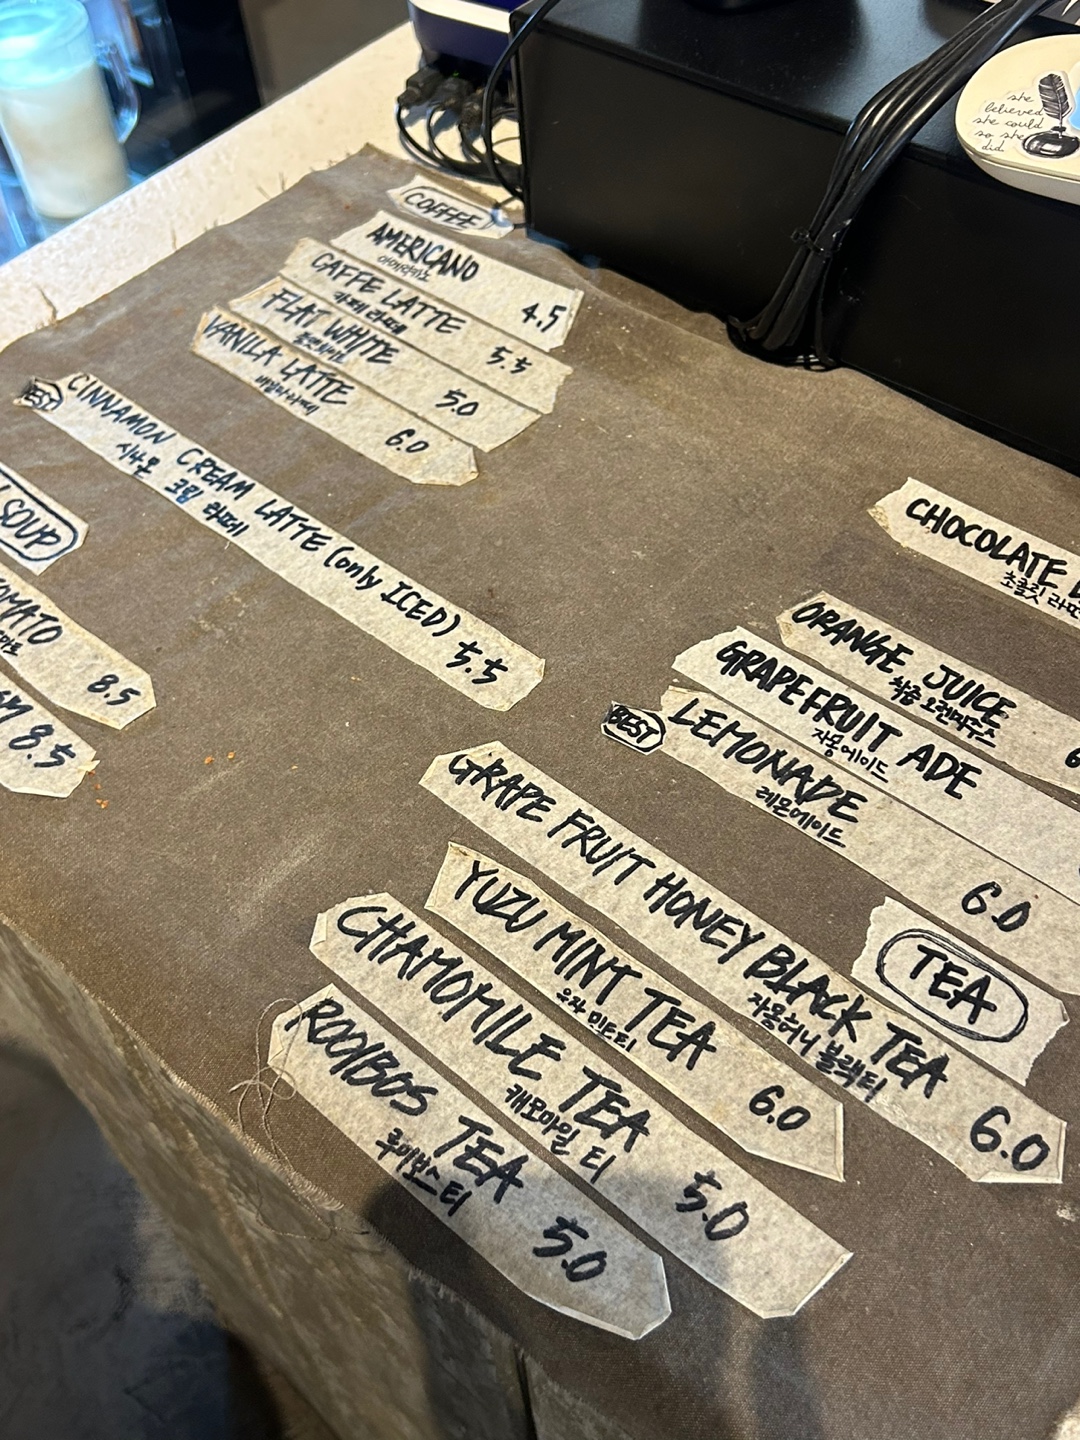 she
believed
she could
so she
did
COFFEE
AMERICANO
아메리카노
4.5
CAFFE LATTE
카페 라떼
5.5
FLAT WHITE
플랫화이트
5.0
VANILA LATTE
바닐라 라떼
6.0
BEST
CINNAMON CREAM LATTE (only ICED) 5.5
시나몬 크림 라떼
SOUP
OMATO
8.5
8.5
CHOCOLATE
초콜릿 라떼
ORANGE JUICE
착즙 오렌지주스
GRAPEFRUIT ADE
자몽에이드
BEST
LEMONADE
레몬에이드
6.0
TEA
GRAPE FRUIT HONEY BLACK TEA
자몽허니 블랙티
6.0
YUZU MINT TEA
유자 민트티
6.0
CHAMOMILE TEA
캐모마일 티
5.0
ROOIBOS TEA
루이보스 티
5.0